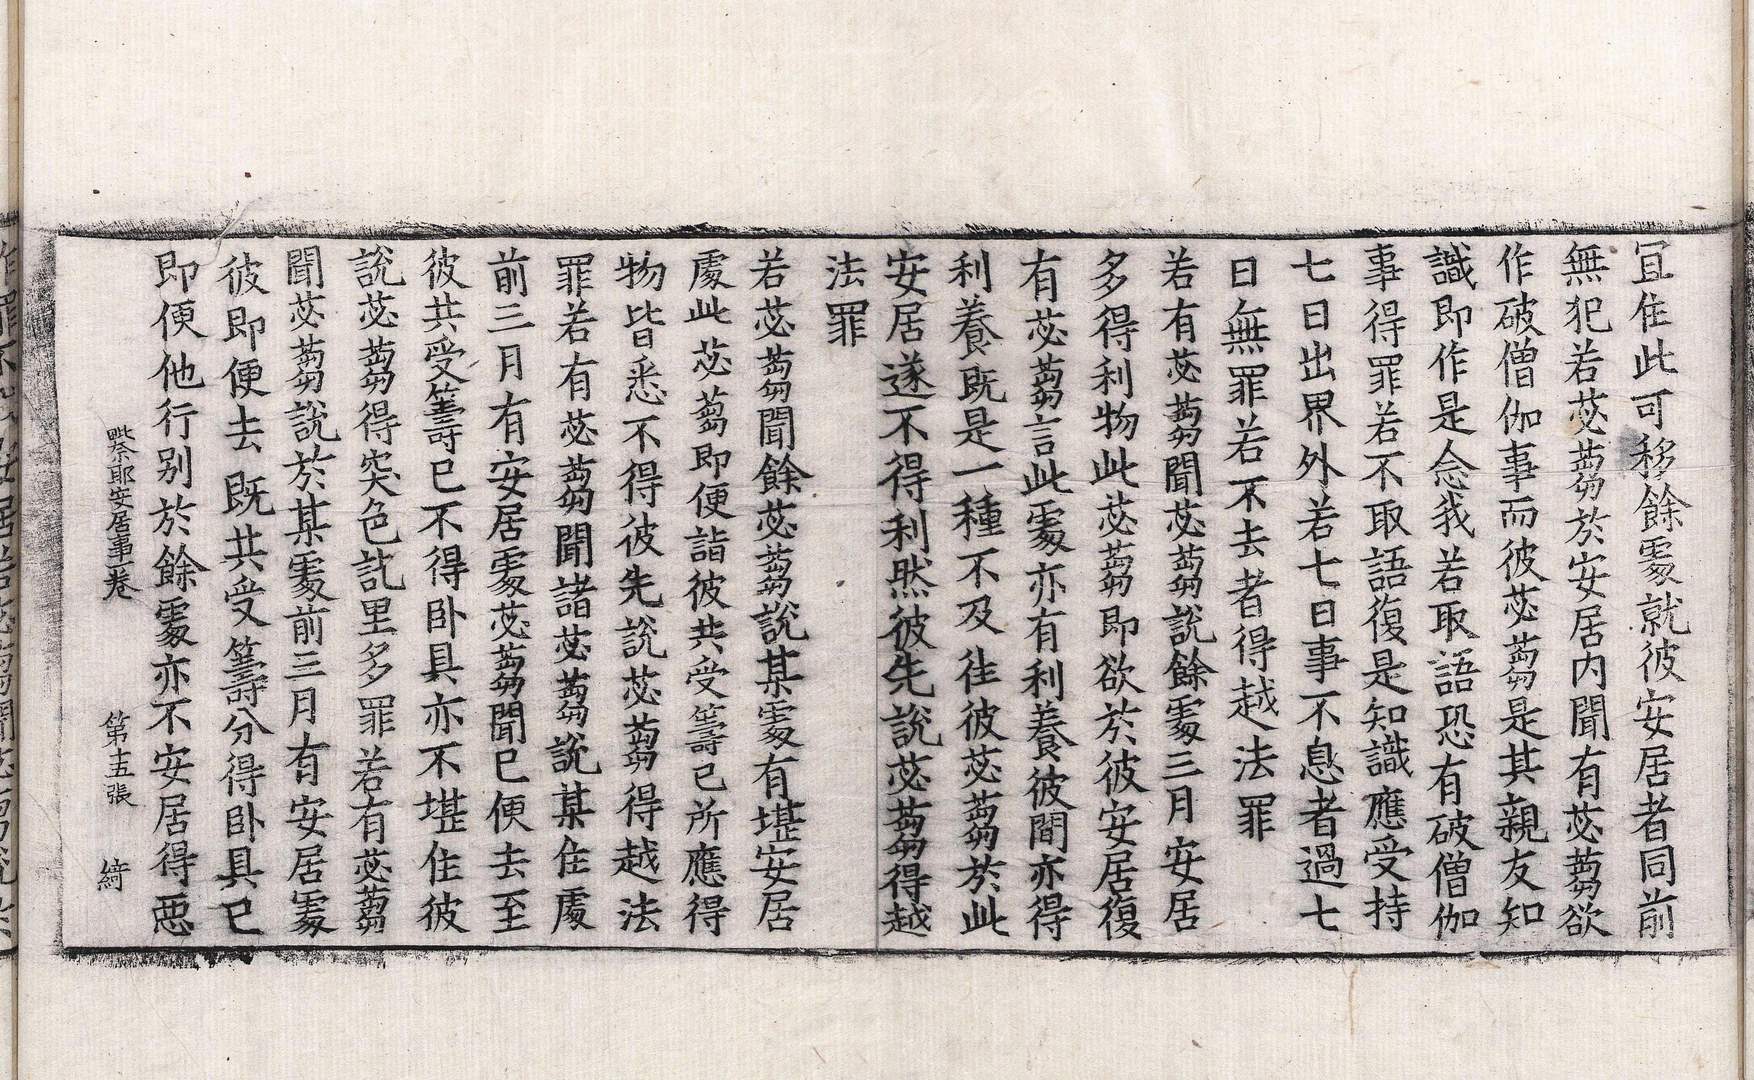 冝住此可移餘䖏就彼安居者同前
無犯若苾蒭於安居内聞有苾蒭欲
作破僧伽事而彼苾蒭是其親友知
識即作是念我若取語恐有破僧伽
事得罪若不取語復是知識應受持
七日出界外若七日事不息者過七
日無罪若不去者得越法罪
若有苾蒭聞苾蒭說餘䖏三月安居
多得利物此苾蒭即欲於彼安居復
有苾蒭言此䖏亦有利養彼聞亦得
利養既是一種不及往彼苾蒭於此
安居遂不得利然彼先說苾蒭得越
法罪
若苾蒭聞餘苾蒭說某䖏有堪安居
處此苾蒭即便詣彼共受籌已所應得
物皆悉不得彼先說苾蒭得越法
罪若有苾蒭聞諸苾蒭說某住處
前三月有安居䖏苾蒭聞已便去至
彼共受籌已不得卧具亦不堪住彼
說苾蒭得突色訖里多罪若有苾蒭
聞苾蒭說於某䖏前三月有安居䖏
彼即便去既共受籌分得卧具已
即便他行别於餘䖏亦不安居得惡
毗奈耶安居事一卷 第十五張 綺